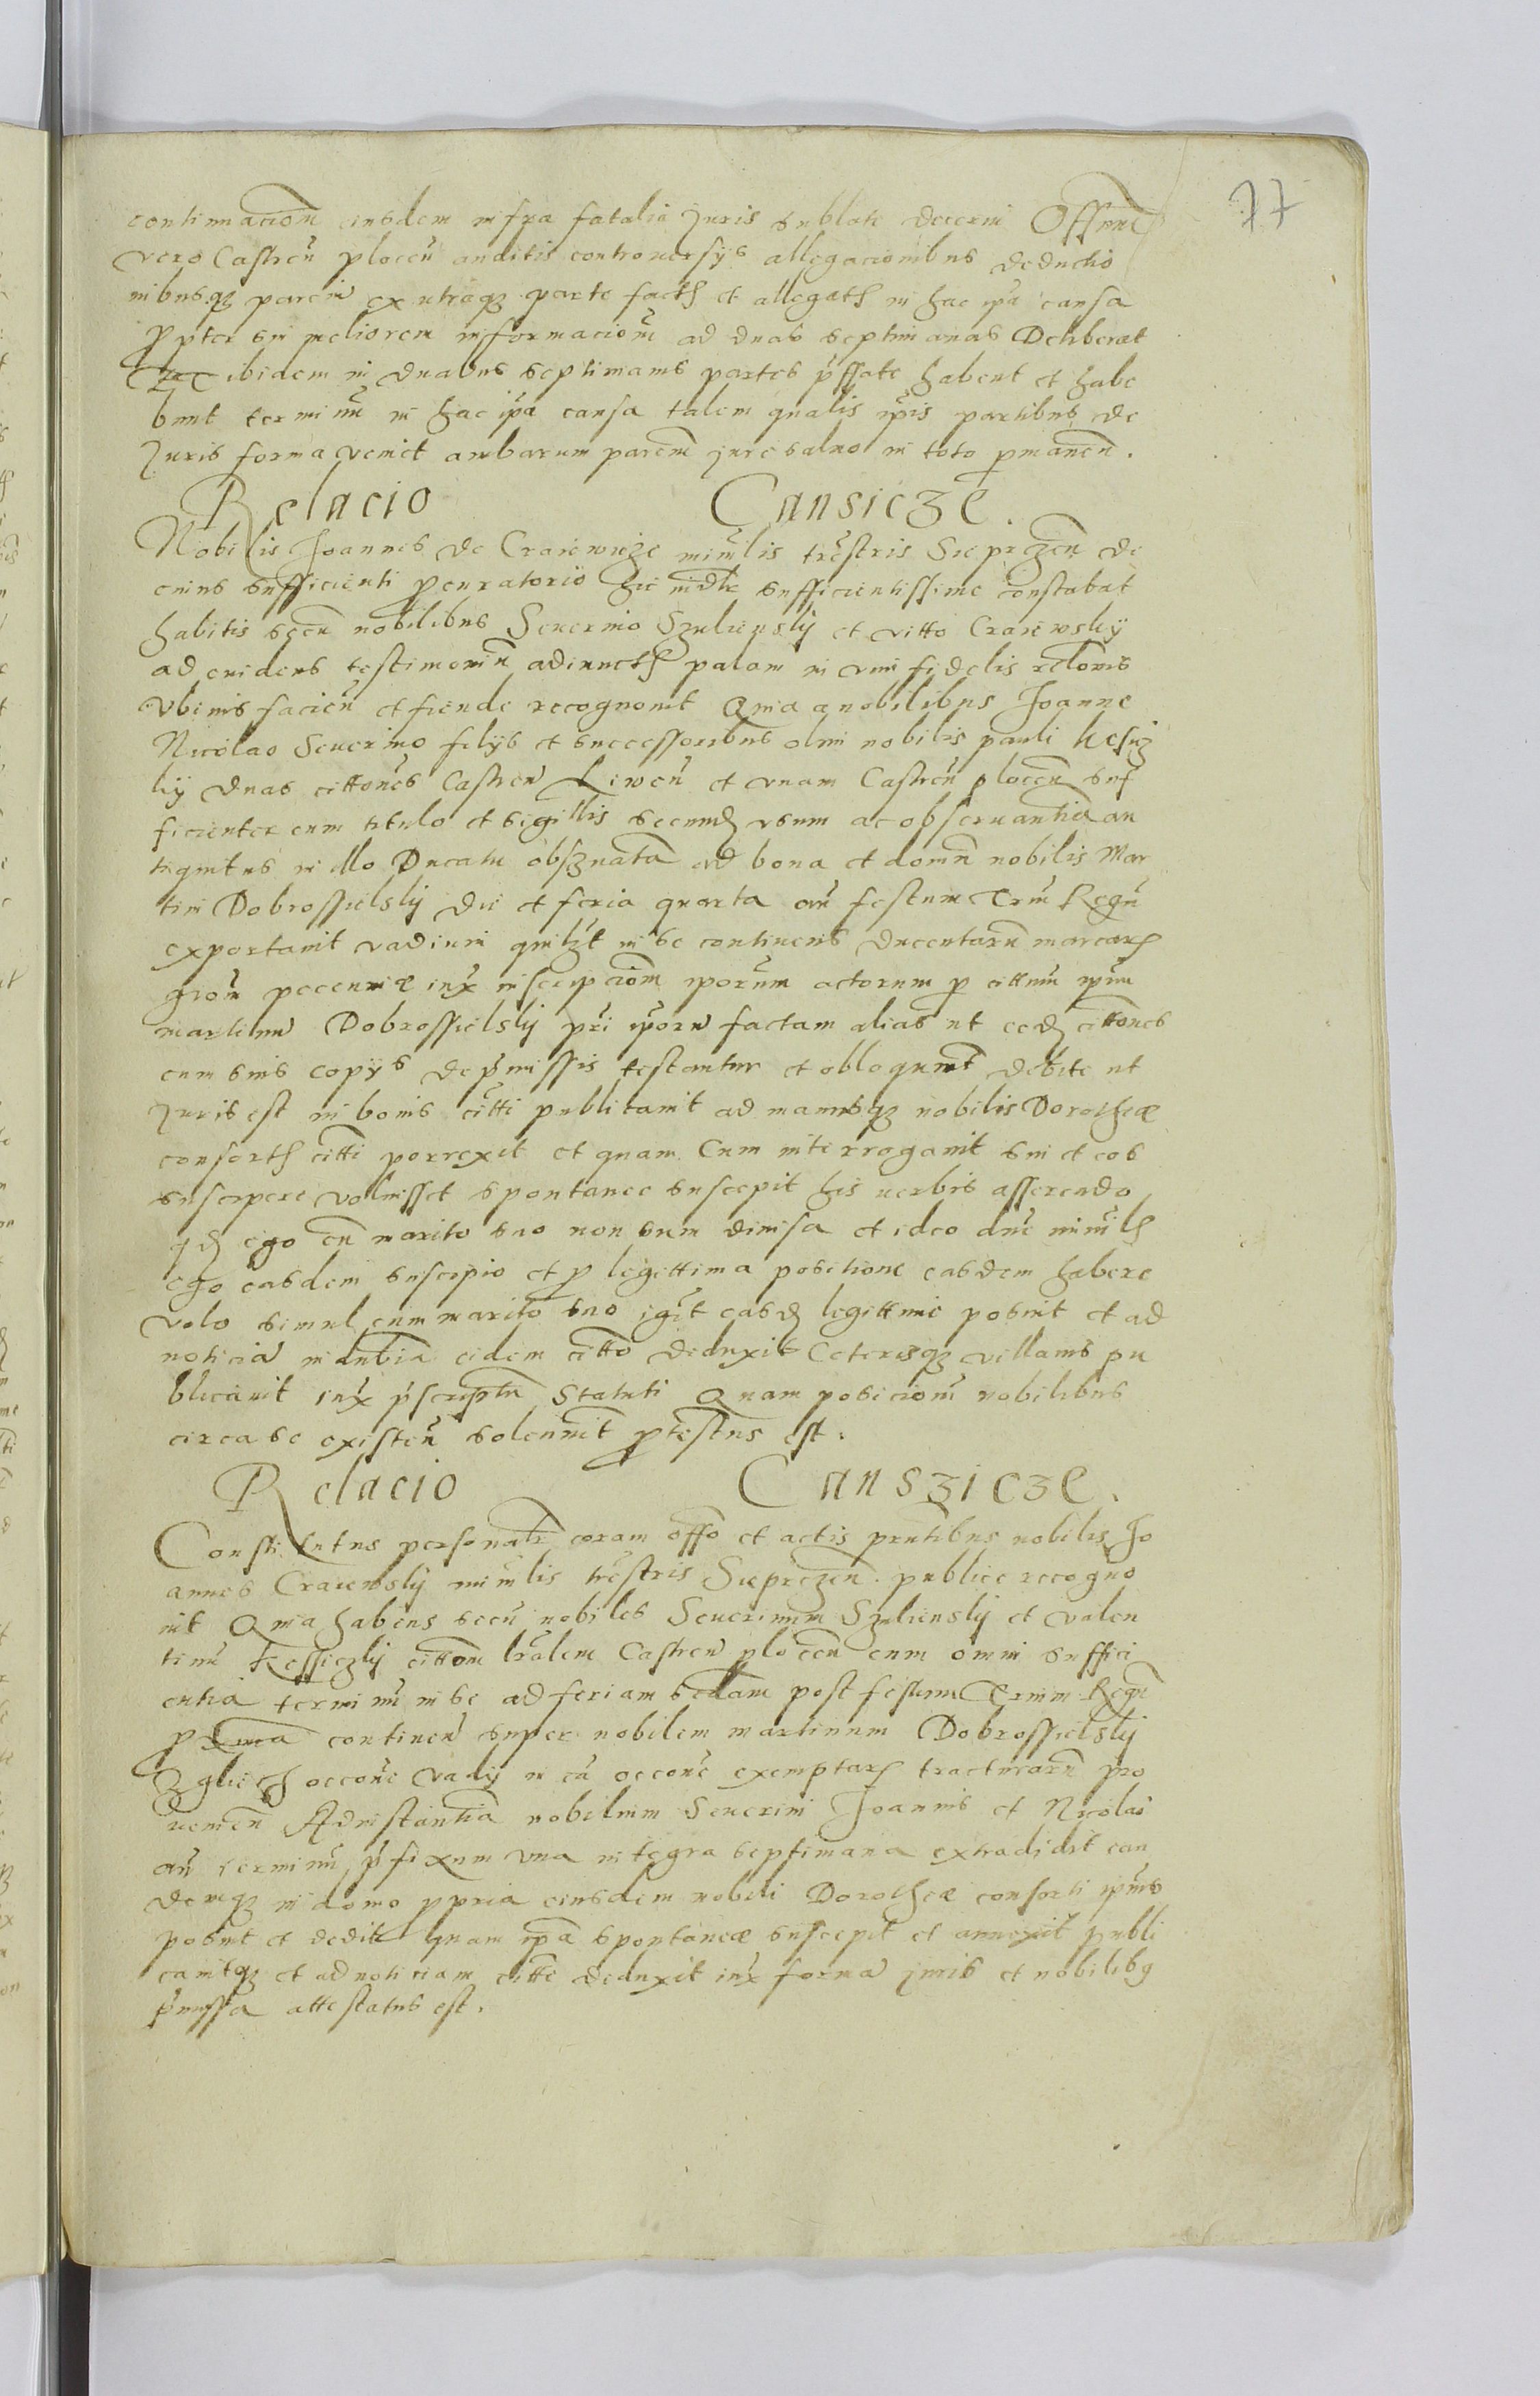 77
continuacionem eiusdem infra fatalia Juris sublate decerni Officium
vero Castren plocen auditis controversijs allegacionibus deductio
nibusqz parciu ex utraqz parte factis et allegatis in hac ipa causa
propter sui meliorem informacionem ad duas septimanas Deliberat
ibidem in duabus septimanis partes pssate habent et habe
bunt terminu in hac ipa causa talem qualis ipis partibus de
Juris forma venit ambarum parciu jure salvo in toto permanen.
Relacio Cansicze.
Nobilis Joannes de Craiewicze mirlis trestris Sieprczen de
cuius sufficienti procuratorio hic sufficientissime constabat
habitis secu nobilibus Severino Szulienslij et vitto Craiewskij
ad evidens testimoniu adiunctis palam in vim fidelis relonis
facien et fiende recognovit Quia a nobilibus Joanne
Nicolao Severino filijs et successoribus olim nobilis pauli kesicz
kij duas cittones Castren et vnam Castren plocen suf
ficienter cum titulo et sigillis secundu vsum ac observantia an
tiquitus in illo Ducatu ad bona et domu nobilis Mar
tini Dobrossielslij die et feria quarta an festum Triu Regu
exportavit vadium in se continens ducentaru marcaru
pecuniae iux inscripciom ipsorum actorum p cittum ipum
martinu Dobrossielslij pri iporu factam alias ut eed cittones
cum suis copijs de pmissis testantur et obloquunt debite ut
Juris est in bonis citti publicavit ad manusqz nobilis Dorotheae
consortis citti porrexit et quam Cum interrogavit si et eos
suscipere voluisset spontanee suscepit his verbis asserendo
qd ego cu marito suo non sum divisa et ideo dne
ego easdem suscipio et p legittima positione easdem habere
volo simul cum marito suo igit easd legittime posuit et ad
noticia indubia eidem citto deduxit Ceterisqz villanis pu
blicavit iux pscriptu Statuti Quam posicionem nobilibus
circa se existen solennit protestus est.
Relacio Canszicze.
Constitutus personalr coram offo et actis pntibus nobilis Jo
annes Craiewslij trestris Sieprczen publice recogno
vit Quia habens secu nobiles Severinum Szulienslij et valen
tinu kessiczlij cittom lralem Castren plocen cum omni suffici
entia terminu in se ad feriam sedam post festum Trium Regu
continen super nobilem martinum Dobrossielslij
occone vadij in ea occone exemptar tracturaru pro
venien Ad instantia nobilium Severini Joannis et Nicolai
an terminu pfixum vna integra septimana extradidit ean
demqz in domo ppria eiusdem nobili Dorotheae consorti ipius
posuit et dedit Quam ipa spontaneae suscepit et annexit publi
cavitqz et ad noticiam citti deduxit iux forma juris et nobilibq
pmissa attestatus est.